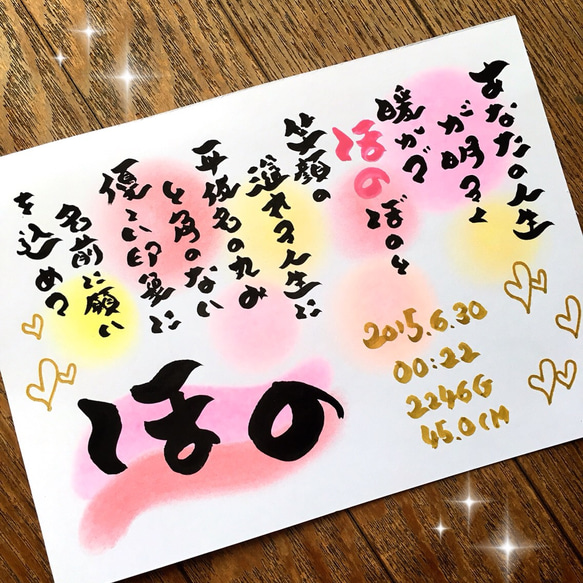 あなたの人生
が明るく
暖かで
ほのぼのと
笑顔の
溢れる人生に
平仮名の丸み
と角のない
優しい印象に
名前に願い
を込めて
2015.6.30
00:22
2246G
45.0cM
ほの